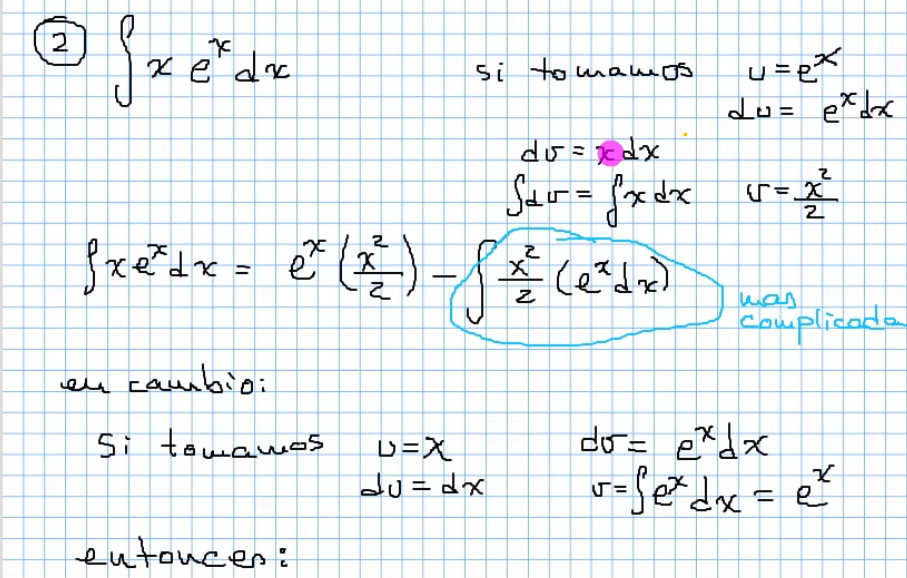 2 ∫ x e^x dx si tomamos u = e^x
du = e^x dx
dv = x dx
∫dv = ∫x dx v = x^2/2
∫x e^x dx = e^x (x^2/2) - ∫ x^2/2 (e^x dx)
mas
complicada
en cambio:
Si tomamos u = x dv = e^x dx
du = dx v = ∫e^x dx = e^x
entonces: